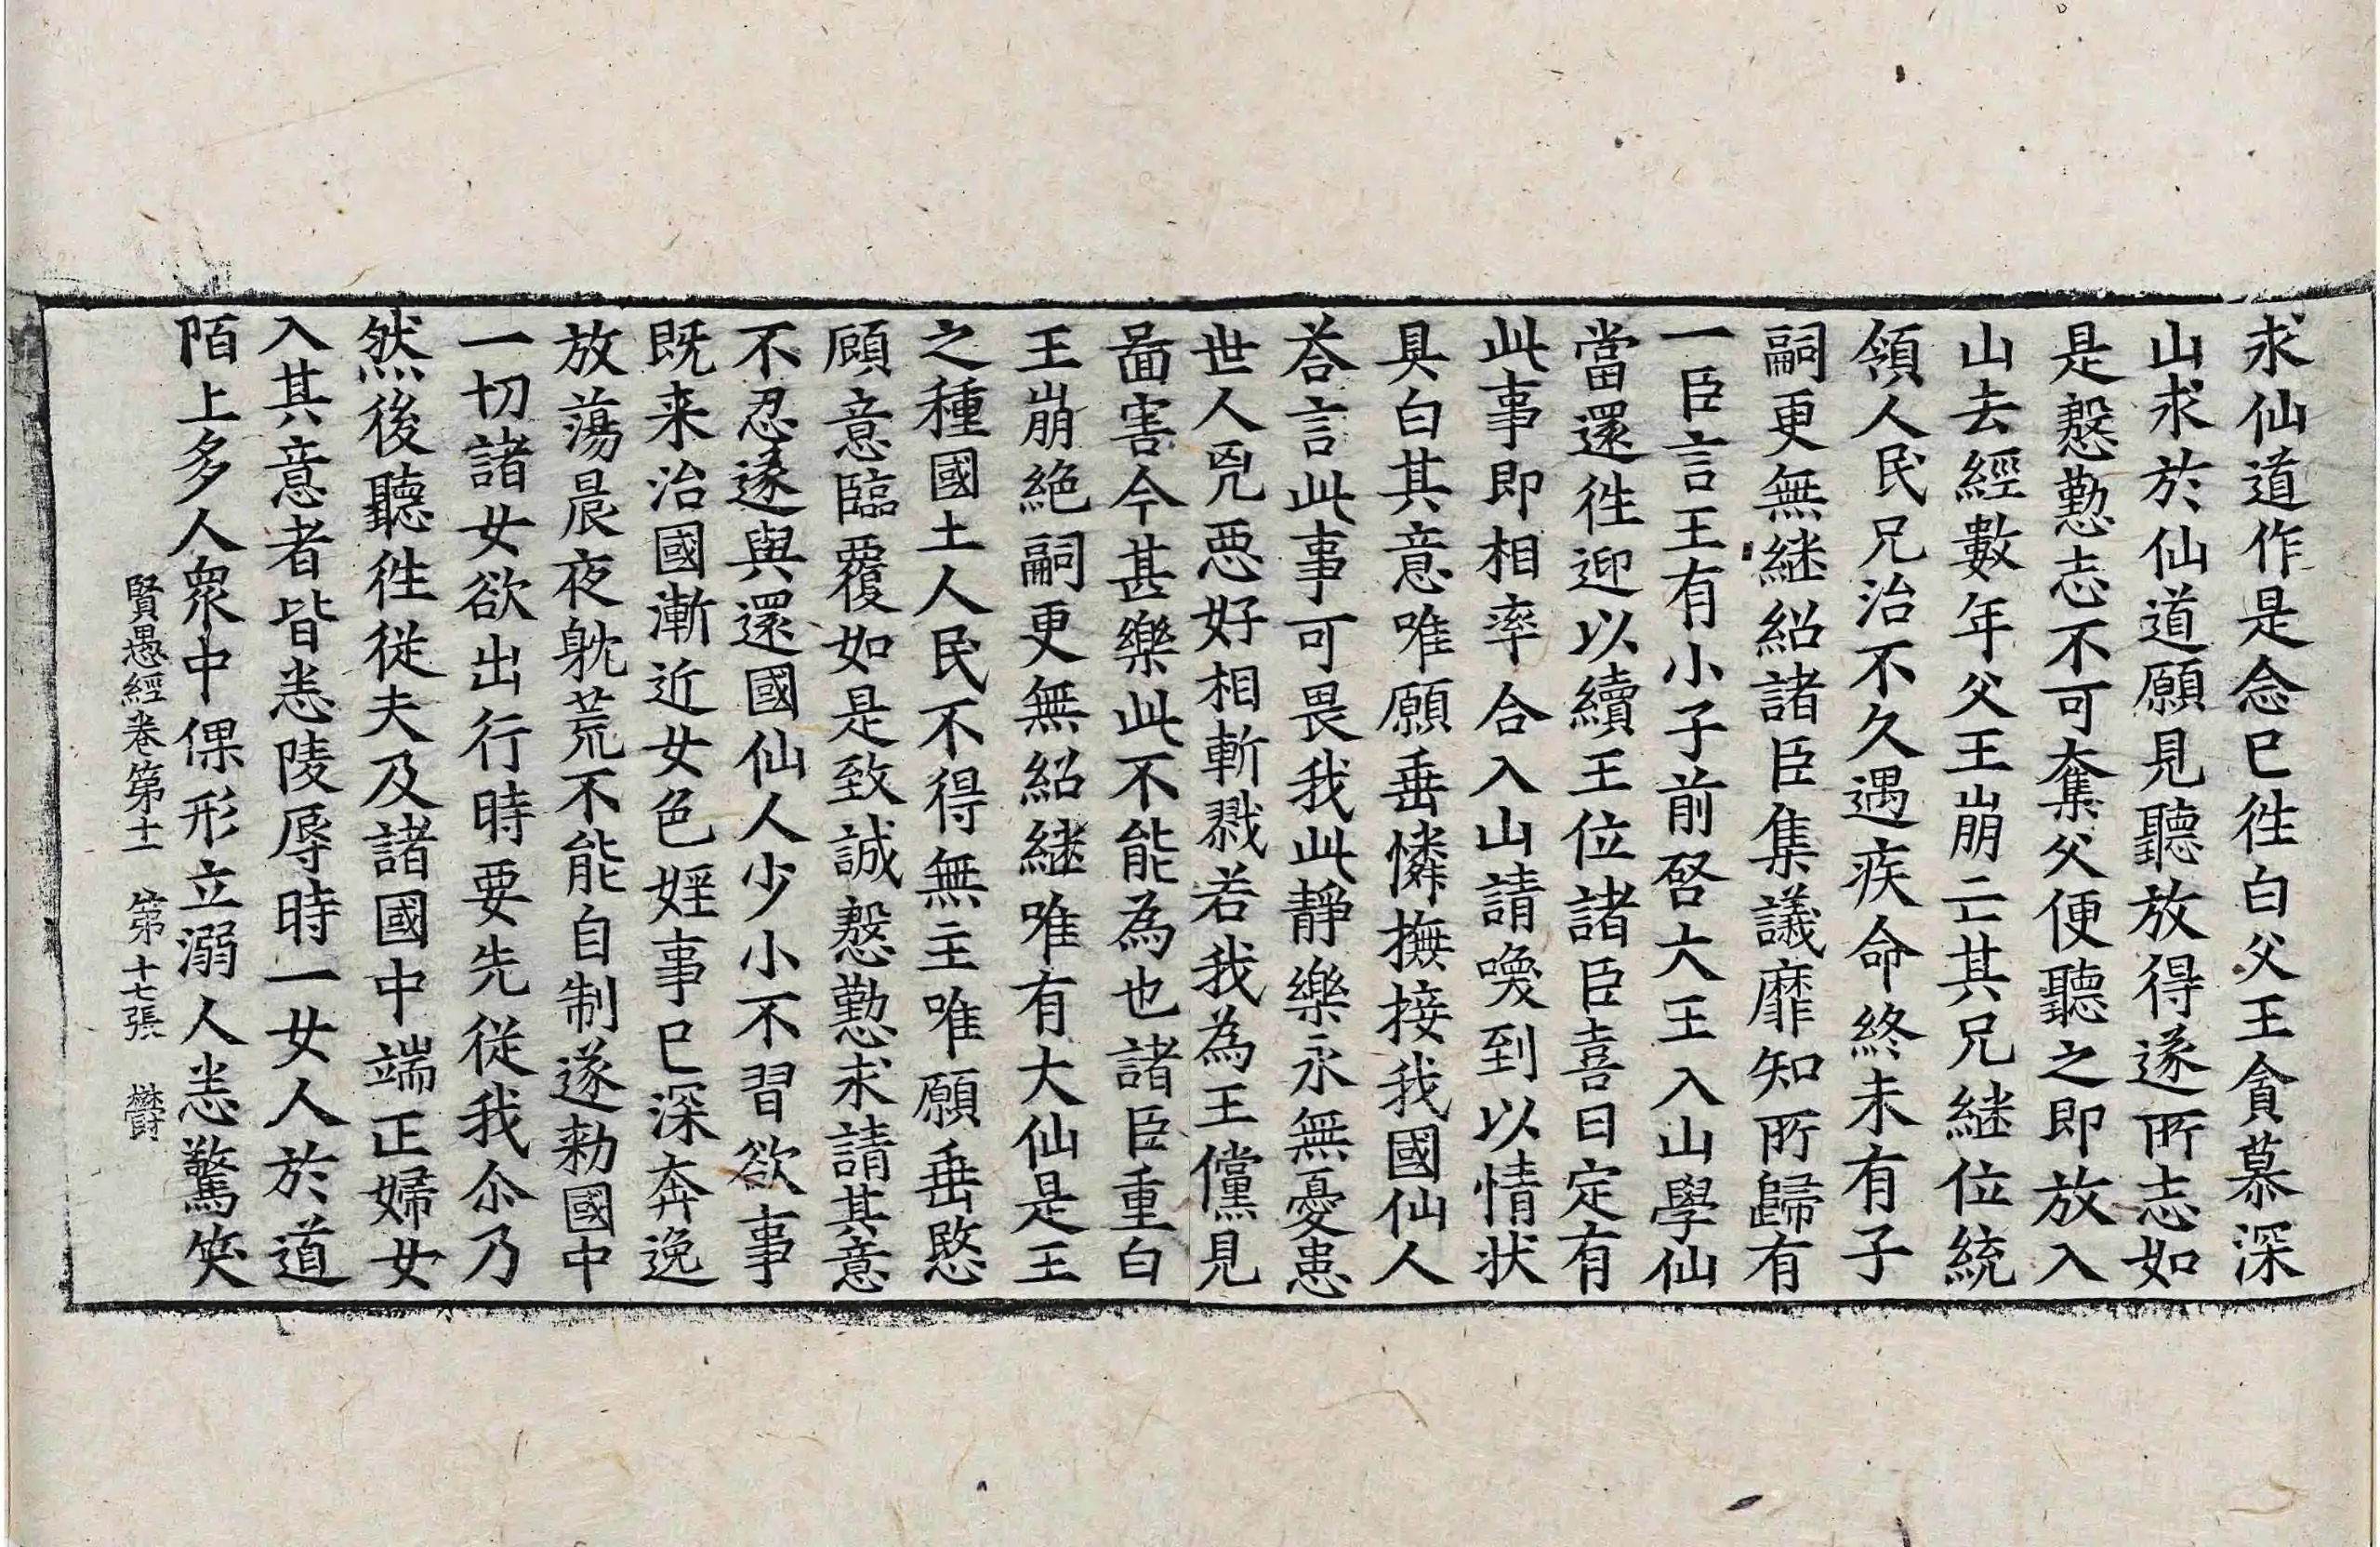 求仙道作是念已徃白父王貪慕深
山求於仙道願見聽放得遂所志如
是慇懃志不可奪父便聽之即放入
山去經數年父王崩亡其兄継位統
領人民兄治不久遇疾命終未有子
嗣更無継紹諸臣集議靡知所歸有
一臣言王有小子前啓大王入山學仙
當還徃迎以續王位諸臣喜曰定有
此事即相率合入山請喚到以情状
具白其意唯願垂憐撫接我國仙人
荅言此事可畏我此靜樂永無憂患
世人兇惡好相斬戮若我為王儻見
啚害今甚樂此不能為也諸臣重白
王崩絶嗣更無紹継唯有大仙是王
之種國土人民不得無主唯願垂愍
顧意臨覆如是致誠慇懃求請其意
不忍遂與還國仙人少小不習欲事
既来治國漸近女色婬事已深奔逸
放蕩晨夜躭荒不能自制遂勑國中
一切諸女欲出行時要先從我尒乃
然後聽徃從夫及諸國中端正婦女
入其意者皆恙陵辱時一女人於道
陌上多人衆中倮形立溺人恙驚笑
賢愚經卷第十一 第十七張 欝